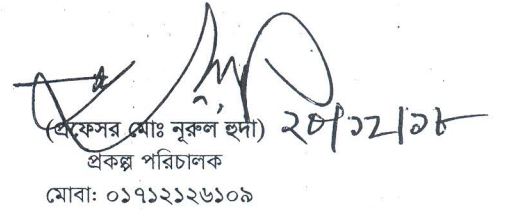 (প্রফেসর মোঃ নূরুল হুদা) ২০/১২/১৮
প্রকল্প পরিচালক
মোবা: ০১৭১২১২৬১০৯